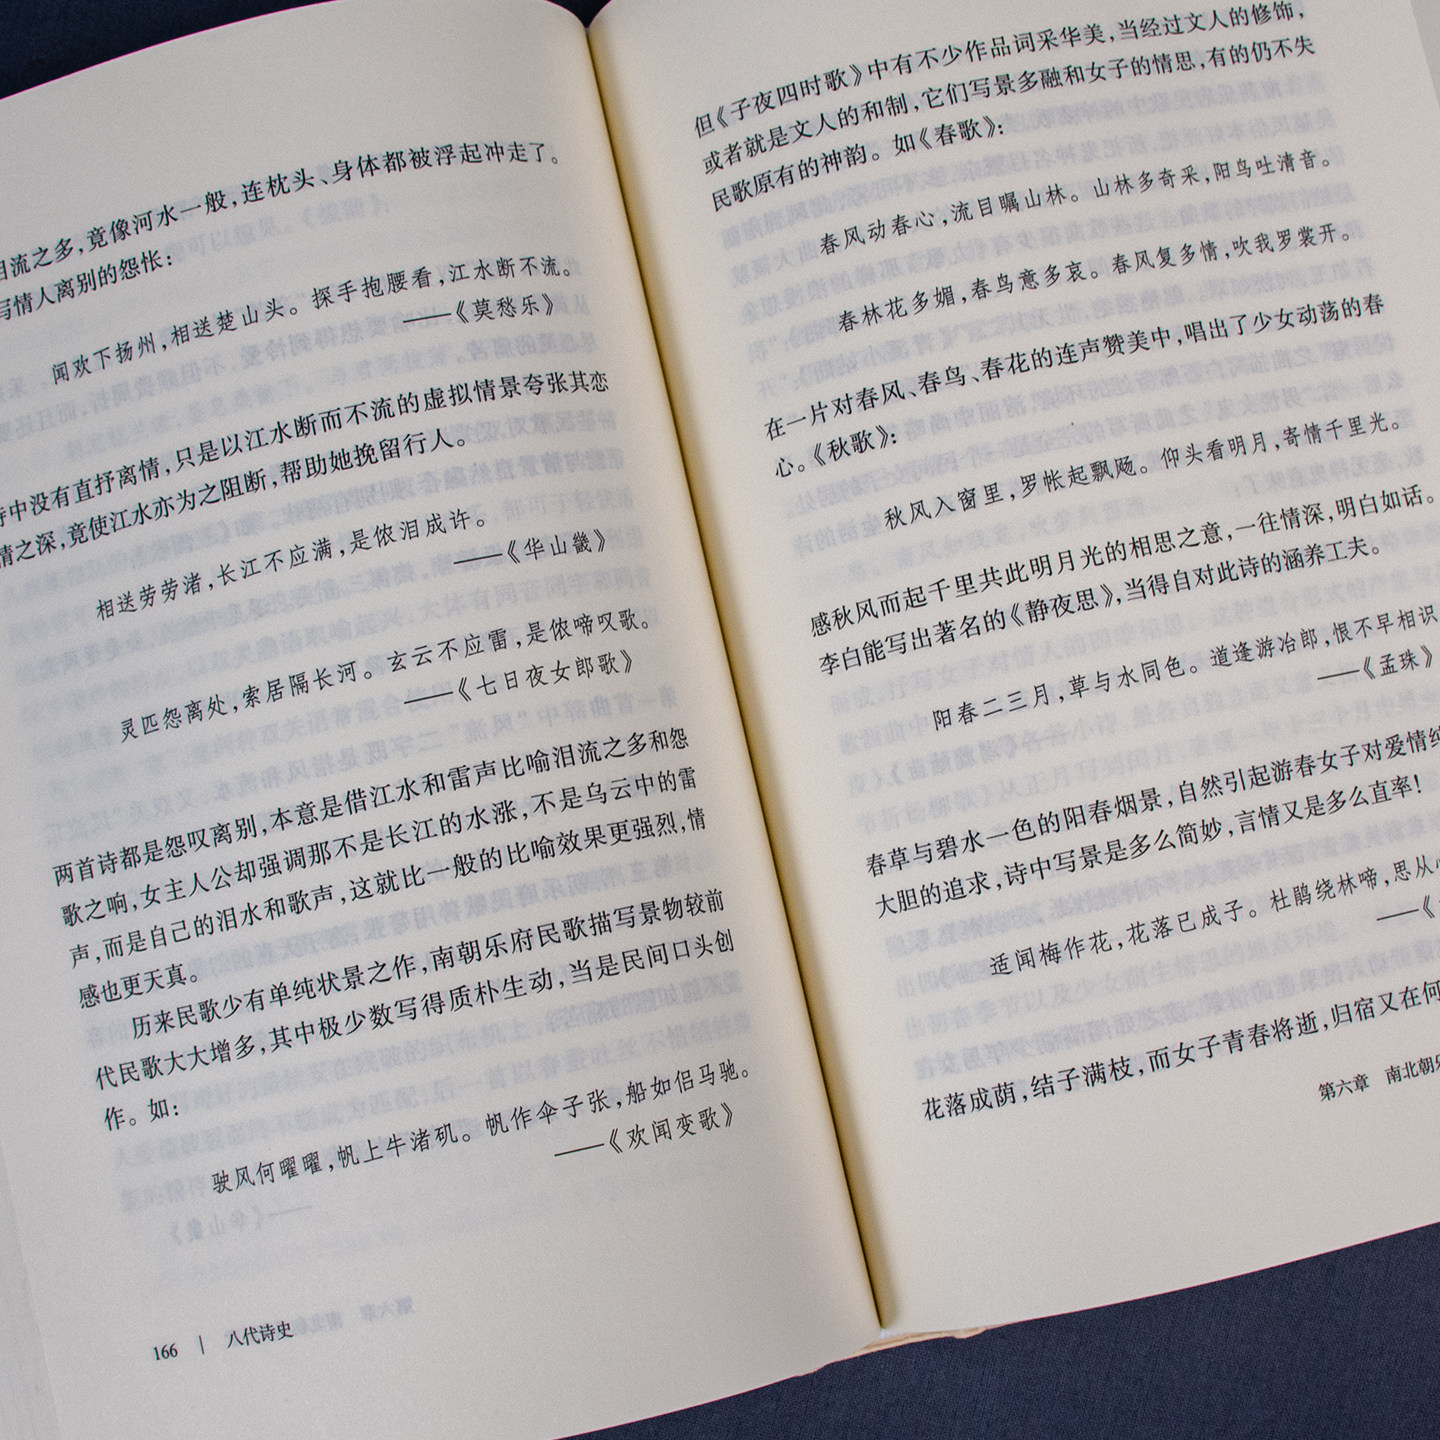 泪流之多，竟像河水一般，连枕头、身体都被浮起冲走了。
写情人离别的怨怅：
闻欢下扬州，相送楚山头。探手抱腰看，江水断不流。
——《莫愁乐》
诗中没有直抒离情，只是以江水断而不流的虚拟情景夸张其恋
情之深，竟使江水亦为之阻断，帮助她挽留行人。
相送劳劳渚，长江不应满，是侬泪成许。
——《华山畿》
灵匹怨离处，索居隔长河。玄云不应雷，是侬啼叹歌。
——《七日夜女郎歌》
两首诗都是怨叹离别，本意是借江水和雷声比喻泪流之多和怨
歌之响，女主人公却强调那不是长江的水涨，不是乌云中的雷
声，而是自己的泪水和歌声，这就比一般的比喻效果更强烈，情
感也更天真。
历来民歌少有单纯状景之作，南朝乐府民歌描写景物较前
代民歌大大增多，其中极少数写得质朴生动，当是民间口头创
作。如：
驶风何曜曜，帆上牛渚矶。帆作伞子张，船如侣马驰。
——《欢闻变歌》
166 | 八代诗史
但《子夜四时歌》中有不少作品词采华美，当经过文人的修饰，
或者就是文人的和制，它们写景多融和女子的情思，有的仍不失
民歌原有的神韵。如《春歌》：
春风动春心，流目瞩山林。山林多奇采，阳鸟吐清音。
春林花多媚，春鸟意多哀。春风复多情，吹我罗裳开。
在一片对春风、春鸟、春花的连声赞美中，唱出了少女动荡的春
心。《秋歌》：
秋风入窗里，罗帐起飘飏。仰头看明月，寄情千里光。
感秋风而起千里共此明月光的相思之意，一往情深，明白如话。
李白能写出著名的《静夜思》，当得自对此诗的涵养工夫。
阳春二三月，草与水同色。道逢游冶郎，恨不早相识
——《孟珠》
春草与碧水一色的阳春烟景，自然引起游春女子对爱情纯
大胆的追求，诗中写景是多么简妙，言情又是多么直率！
适闻梅作花，花落已成子。杜鹃绕林啼，思从心
——《
花落成荫，结子满枝，而女子青春将逝，归宿又在何
第六章 南北朝乐